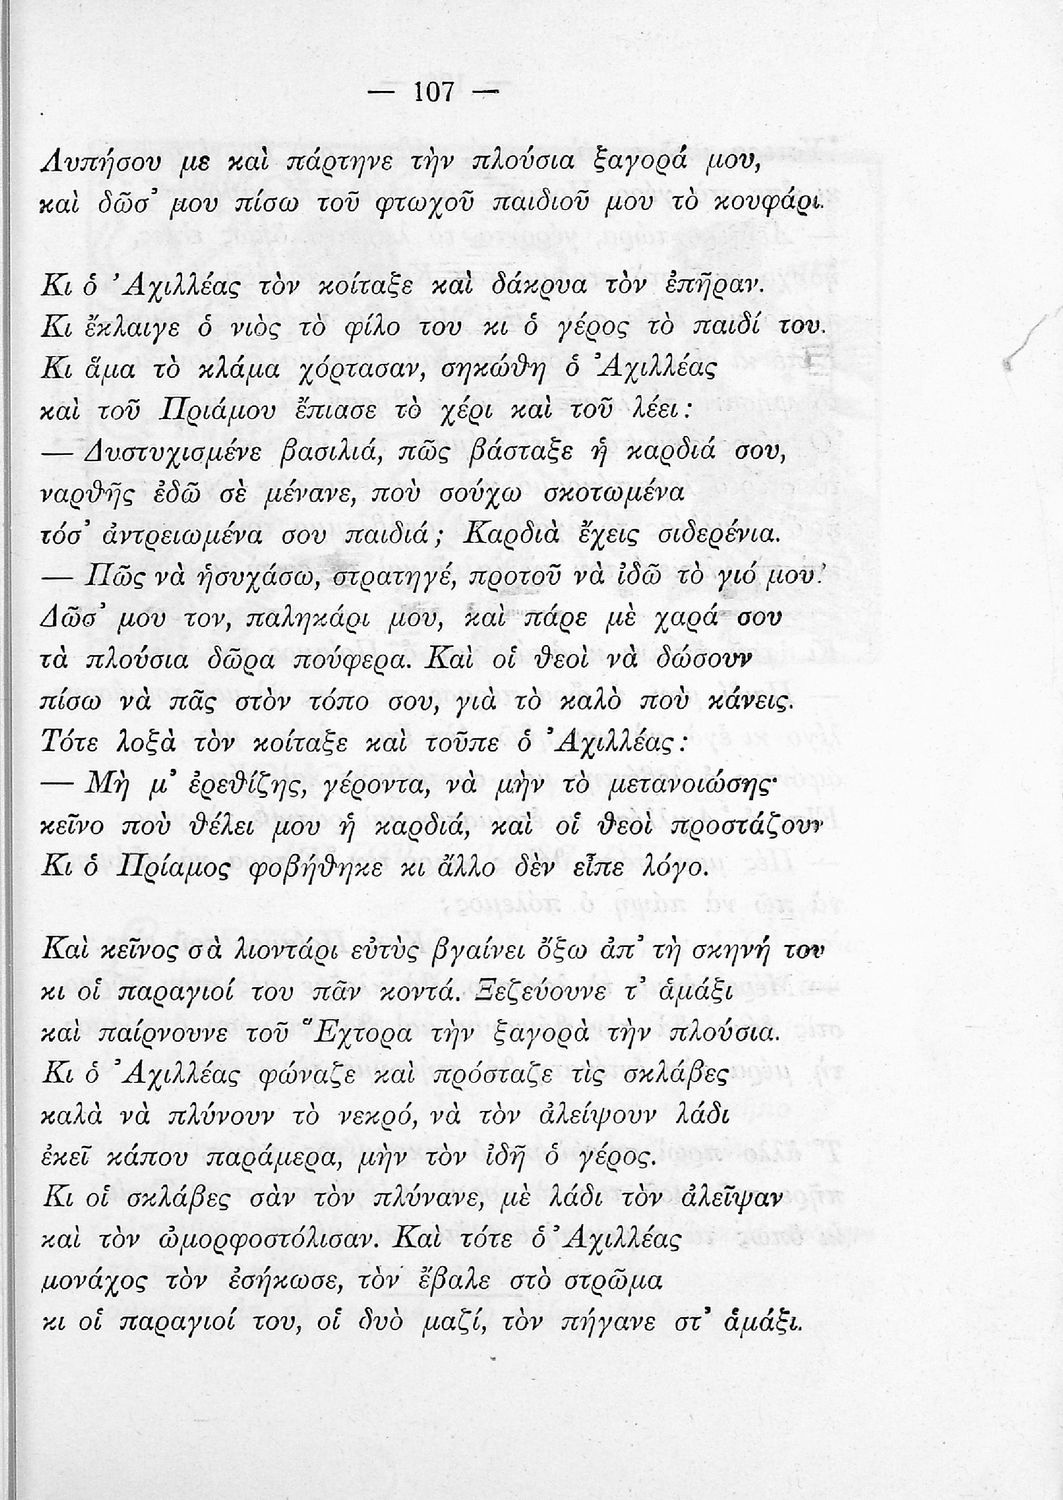 — 107 —
Λυπήσου με καὶ πάρτηνε τὴν πλούσια ξαγορά μου,
καὶ δῶσ' μου πίσω τοῦ φτωχοῦ παιδιοῦ μου τὸ κουφάρι.
Κι ὁ Ἀχιλλέας τὸν κοίταξε καὶ δάκρυα τὸν ἐπῆραν.
Κι ἔκλαιγε ὁ νιὸς τὸ φίλο του κι ὁ γέρος τὸ παιδί του.
Κι ἅμα τὸ κλάμα χόρτασαν, σηκώθη ὁ Ἀχιλλέας
καὶ τοῦ Πριάμου ἔπιασε τὸ χέρι καὶ τοῦ λέει:
— Δυστυχισμένε βασιλιά, πῶς βάσταξε ἡ καρδιά σου,
ναρθῆς ἐδῶ σὲ μένανε, ποὺ σούχω σκοτωμένα
τόσ' ἀντρειωμένα σου παιδιά; Καρδιὰ ἔχεις σιδερένια.
— Πῶς νὰ ἡσυχάσω, στρατηγέ, προτοῦ νὰ ἰδῶ τὸ γιό μου;
Δῶσ' μου τον, παληκάρι μου, καὶ πάρε μὲ χαρά σου
τὰ πλούσια δῶρα πούφερα. Καὶ οἱ θεοὶ νὰ δώσουν
πίσω νὰ πᾶς στὸν τόπο σου, γιὰ τὸ καλὸ ποὺ κάνεις.
Τότε λοξὰ τὸν κοίταξε καὶ τοῦπε ὁ Ἀχιλλέας:
— Μὴ μ' ἐρεθίζης, γέροντα, νὰ μὴν τὸ μετανοιώσης·
κεῖνο ποὺ θέλει μου ἡ καρδιά, καὶ οἱ θεοὶ προστάζουν
Κι ὁ Πρίαμος φοβήθηκε κι ἄλλο δὲν εἶπε λόγο.
Καὶ κεῖνος σὰ λιοντάρι εὐτὺς βγαίνει ὄξω ἀπ' τὴ σκηνή του
κι οἱ παραγιοί του πᾶν κοντά. Ξεζεύουνε τ' ἁμάξι
καὶ παίρνουνε τοῦ Ἕχτορα τὴν ξαγορὰ τὴν πλούσια.
Κι ὁ Ἀχιλλέας φώναζε καὶ πρόσταζε τὶς σκλάβες
καλὰ νὰ πλύνουν τὸ νεκρό, νὰ τὸν ἀλείψουν λάδι
ἐκεῖ κάπου παράμερα, μὴν τὸν ἰδῆ ὁ γέρος.
Κι οἱ σκλάβες σὰν τὸν πλύνανε, μὲ λάδι τὸν ἀλεῖψαν
καὶ τὸν ὡμορφοστόλισαν. Καὶ τότε ὁ Ἀχιλλέας
μονάχος τὸν ἐσήκωσε, τὸν ἔβαλε στὸ στρῶμα
κι οἱ παραγιοί του, οἱ δυὸ μαζί, τὸν πήγανε στ' ἁμάξι.